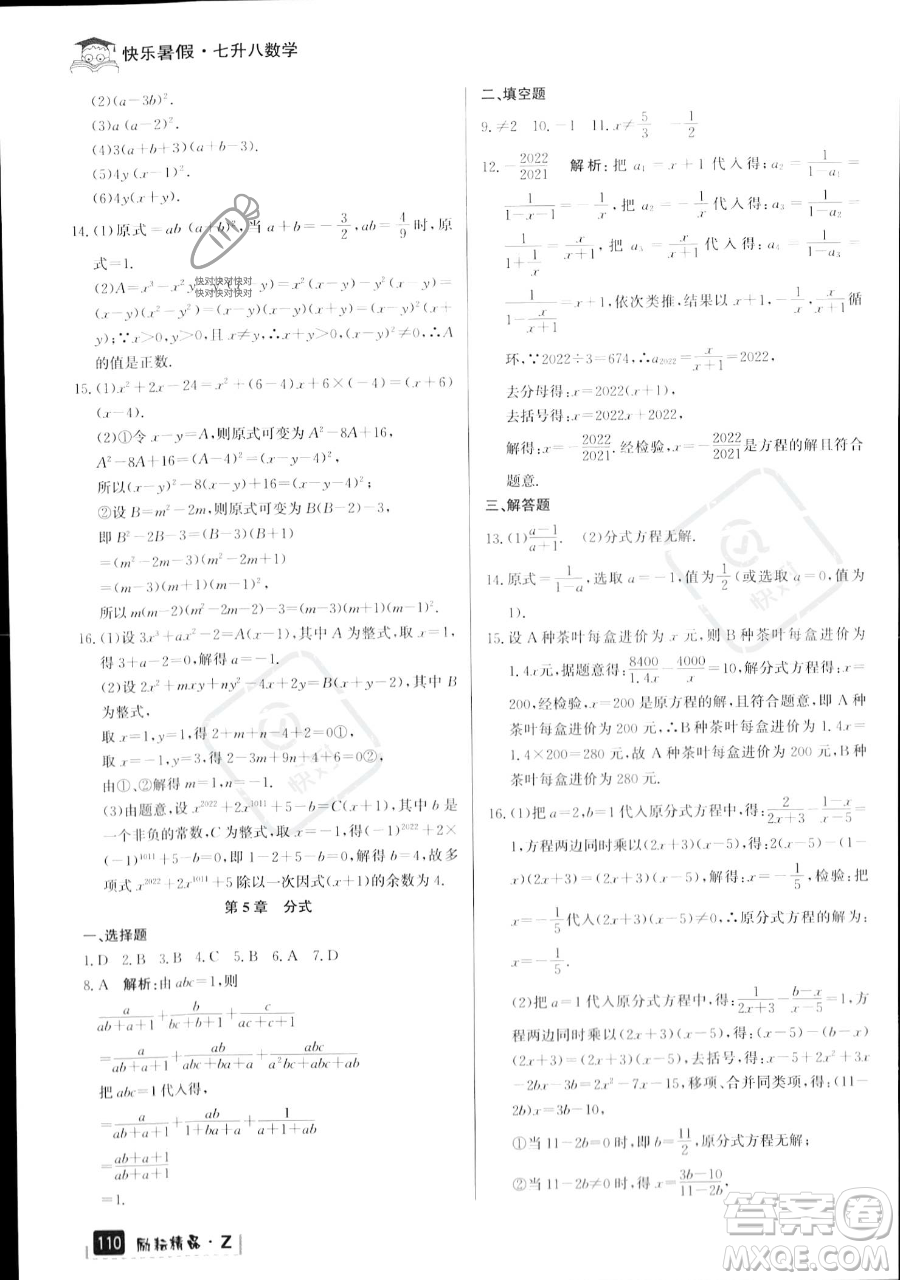 快乐暑假·七升八数学
(2)(a−3b)².
(3)a(a−2)².
(4)3(a+b+3)(a−b).
(5)4y(x−1)².
(6)4y(x+y).
14.(1)原式=ab(a+b)²,当a+b=−3/2,ab=4/9时,原
式=1.
(x−y)(x²−y²)=(x−y)(x−y)(x+y)=(x−y)²
(x+y);∵x>0,y>0,且x≠y,∴x+y>0,∴A
的值是正数.
15.(1)x²+2x−24=x²+(6−4)x+6×(−4)=(x+6)
(x−4).
(2)①令x−y=A,则原式可变为A²−8A+16,
A²−8A+16=(A−4)²,
所以(x−y)²−8(x−y)+16=(x−y−4)².
②设B=m²−2m,则原式可变为B(B−2)−3,
即B²−2B−3=(B−3)(B+1)
=(m²−2m−3)(m²−2m+1)
=(m−3)(m+1)(m−1)²,
所以m(m−2)(m²−2m−2)−3=(m−3)(m+1)
(m−1)².
16.(1)设3x³+ax²−2=A(x−1),其中A为整式,取x=1
得3+a−2=0,解得a=−1.
(2)设2x²+mxy+ny²−4x+2y=B(x+y),其中B
为整式,
取x=1,y=−1得2−m+n−4−2=0①,
取x=−1,y=1得2−m+n+4+2=0②,
由①、②解得m=1,n=0.
(3)由题意,设x²⁰²²+2x¹⁰¹¹+5−b=C(x+1),b是
一个非负的常数,C为整式,取x=−1得(−1)²⁰²²+2×
(−1)¹⁰¹¹+5−b=0,即1−2+5−b=0,解得b=4,故多
项式x²⁰²²+2x¹⁰¹¹+5除以一次因式(x+1)的余数为4.
第5章 分式
一、选择题
1.D 2.B 3.B 4.C 5.B 6.A 7.D
8.A 解析:由abc=1,则
a/(ab+a+1)+b/(bc+b+1)+c/(ca+c+1)
=a/(ab+a+1)+ab/(abc+ab+a)+abc/(a²bc+abc+ab)
把abc=1代入得:
a/(ab+a+1)+ab/(1+ba+a)+1/(a+1+ab)
=(ab+a+1)/(ab+a+1)
=1.
二、填空题
9.≠2 10.−1 11.x≠5/3 −1/2
12.−2022/2021 解析:把a₁=x+1代入得:a₂=1/(1−a₁)=
1/(1−x−1)=−1/x,把a₂=−1/x代入得:a₃=1/(1−a₂)=
1/(1+1/x)=x/(x+1),把a₃=x/(x+1)代入得:a₄=1/(1−a₃)=
1/(1−x/(x+1))=x+1,依次类推,结果以x+1,−1/x,x/(x+1)循
环,∵2022÷3=674,∴a₂₀₂₂=x/(x+1)=2022,
去分母得:x=2022(x+1),
去括号得:x=2022x+2022,
解得:x=−2022/2021.经检验,x=−2022/2021是方程的解且符合
题意.
三、解答题
13.(1)(a−1)/(a+1). (2)分式方程无解.
14.原式=1/(1−a),选取a=−1,值为1/2(或选取a=0,值为
1).
15.设A种茶叶每盒进价为x元,则B种茶叶每盒进价为
1.4x元,据题意得:8400/1.4x−4000/x=10,解分式方程得:x=
200,经检验,x=200是原方程的解,且符合题意,即A种
茶叶每盒进价为200元,∴B种茶叶每盒进价为1.4x=
1.4×200=280元,故A种茶叶每盒进价为200元,B种
茶叶每盒进价为280元.
16.(1)把a=2,b=1代入原分式方程中,得:2/(2x+3)−(1−x)/(x−5)=
1,方程两边同时乘以(2x+3)(x−5),得:2(x−5)−(1−
x)(2x+3)=(2x+3)(x−5),解得:x=−1/5,检验:把
x=−1/5代入(2x+3)(x−5)≠0,∴原分式方程的解为:
x=−1/5.
(2)把a=1代入原分式方程中,得:1/(2x+3)−(b−x)/(x−5)=1,方
程两边同时乘以(2x+3)(x−5),得:(x−5)−(b−x)
(2x+3)=(2x+3)(x−5),去括号,得:x−5+2x²+3x−
2bx−3b=2x²−7x−15,移项、合并同类项,得:(11−
2b)x=3b−10,
①当11−2b=0时,即b=11/2,原分式方程无解;
②当11−2b≠0时,得:x=(3b−10)/(11−2b),
110 励耘精品·Z